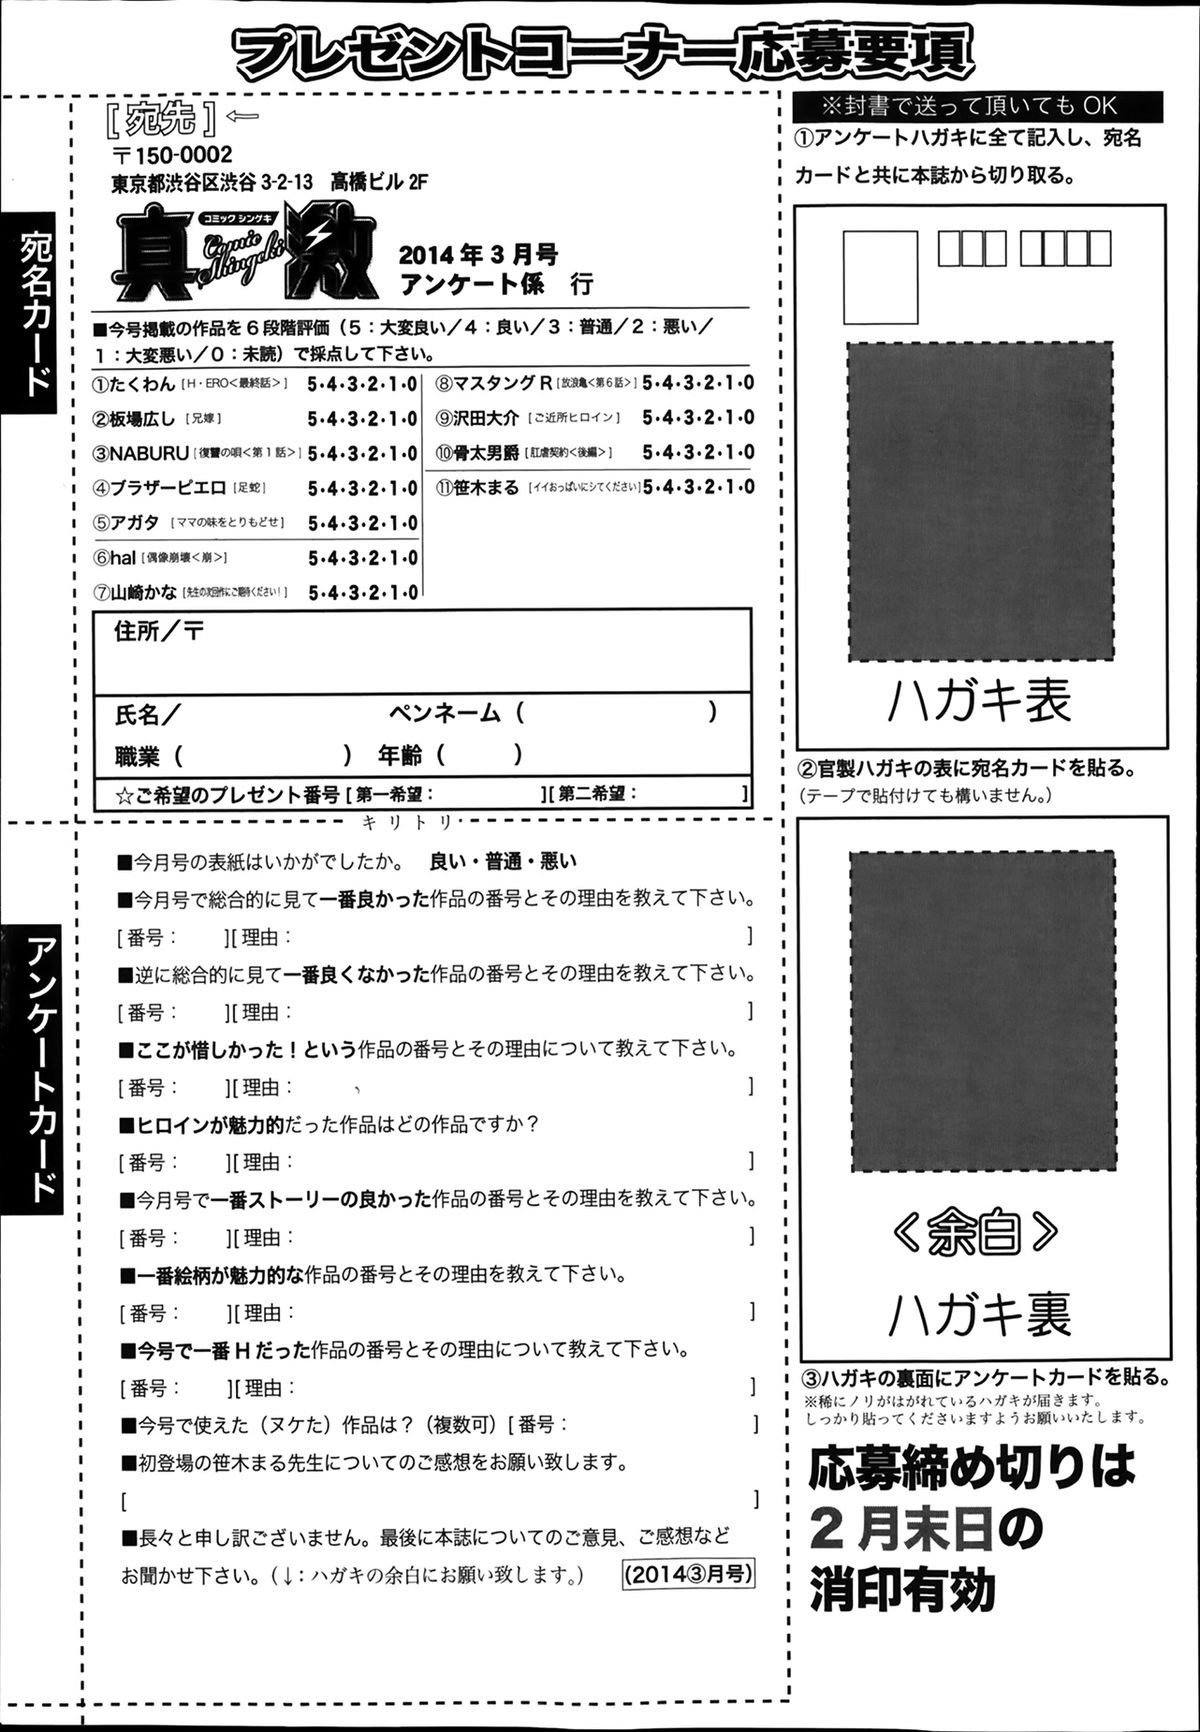 プレゼントコーナー応募要項
[宛先]←
〒150-0002
東京都渋谷区渋谷 3-2-13　高橋ビル 2F
真激
コミック シンゲキ
Comic Shingeki
2014 年 3 月号
アンケート係　行
宛名カード
■今号掲載の作品を 6 段階評価（5：大変良い／4：良い／3：普通／2：悪い／
1：大変悪い／0：未読）で採点して下さい。
①たくわん［H・ERO＜最終話＞］ 5・4・3・2・1・0
②板場広し［兄嫁］ 5・4・3・2・1・0
③NABURU［復讐の唄＜第1話＞］ 5・4・3・2・1・0
④ブラザーピエロ［足蛇］ 5・4・3・2・1・0
⑤アガタ［ママの味をとりもどせ］ 5・4・3・2・1・0
⑥hal［偶像崩壊＜崩＞］ 5・4・3・2・1・0
⑦山崎かな［先生の次回作にご期待ください！］ 5・4・3・2・1・0
⑧マスタング R［放浪亀＜第6話＞］ 5・4・3・2・1・0
⑨沢田大介［ご近所ヒロイン］ 5・4・3・2・1・0
⑩骨太男爵［肛虐契約＜後編＞］ 5・4・3・2・1・0
⑪笹木まる［イイおっぱいにシてください］ 5・4・3・2・1・0
住所／〒
氏名／　ペンネーム（　）
職業（　）　年齢（　）
☆ご希望のプレゼント番号 [ 第一希望：　][ 第二希望：　]
キリトリ
アンケートカード
■今月号の表紙はいかがでしたか。　良い・普通・悪い
■今月号で総合的に見て一番良かった作品の番号とその理由を教えて下さい。
[ 番号：　][ 理由：　]
■逆に総合的に見て一番良くなかった作品の番号とその理由を教えて下さい。
[ 番号：　][ 理由：　]
■ここが惜しかった！という作品の番号とその理由について教えて下さい。
[ 番号：　][ 理由：　]
■ヒロインが魅力的だった作品はどの作品ですか？
[ 番号：　][ 理由：　]
■今月号で一番ストーリーの良かった作品の番号とその理由を教えて下さい。
[ 番号：　][ 理由：　]
■一番絵柄が魅力的な作品の番号とその理由を教えて下さい。
[ 番号：　][ 理由：　]
■今号で一番 H だった作品の番号とその理由について教えて下さい。
[ 番号：　][ 理由：　]
■今号で使えた（ヌケた）作品は？（複数可）[ 番号：　]
■初登場の笹木まる先生についてのご感想をお願い致します。
[　]
■長々と申し訳ございません。最後に本誌についてのご意見、ご感想など
お聞かせ下さい。（↓：ハガキの余白にお願い致します。）　(2014③月号)
※封書で送って頂いても OK
①アンケートハガキに全て記入し、宛名
カードと共に本誌から切り取る。
ハガキ表
②官製ハガキの表に宛名カードを貼る。
（テープで貼付けても構いません。）
＜余白＞
ハガキ裏
③ハガキの裏面にアンケートカードを貼る。
※稀にノリがはがれているハガキが届きます。
しっかり貼ってくださいますようお願いいたします。
応募締め切りは
2 月末日の
消印有効